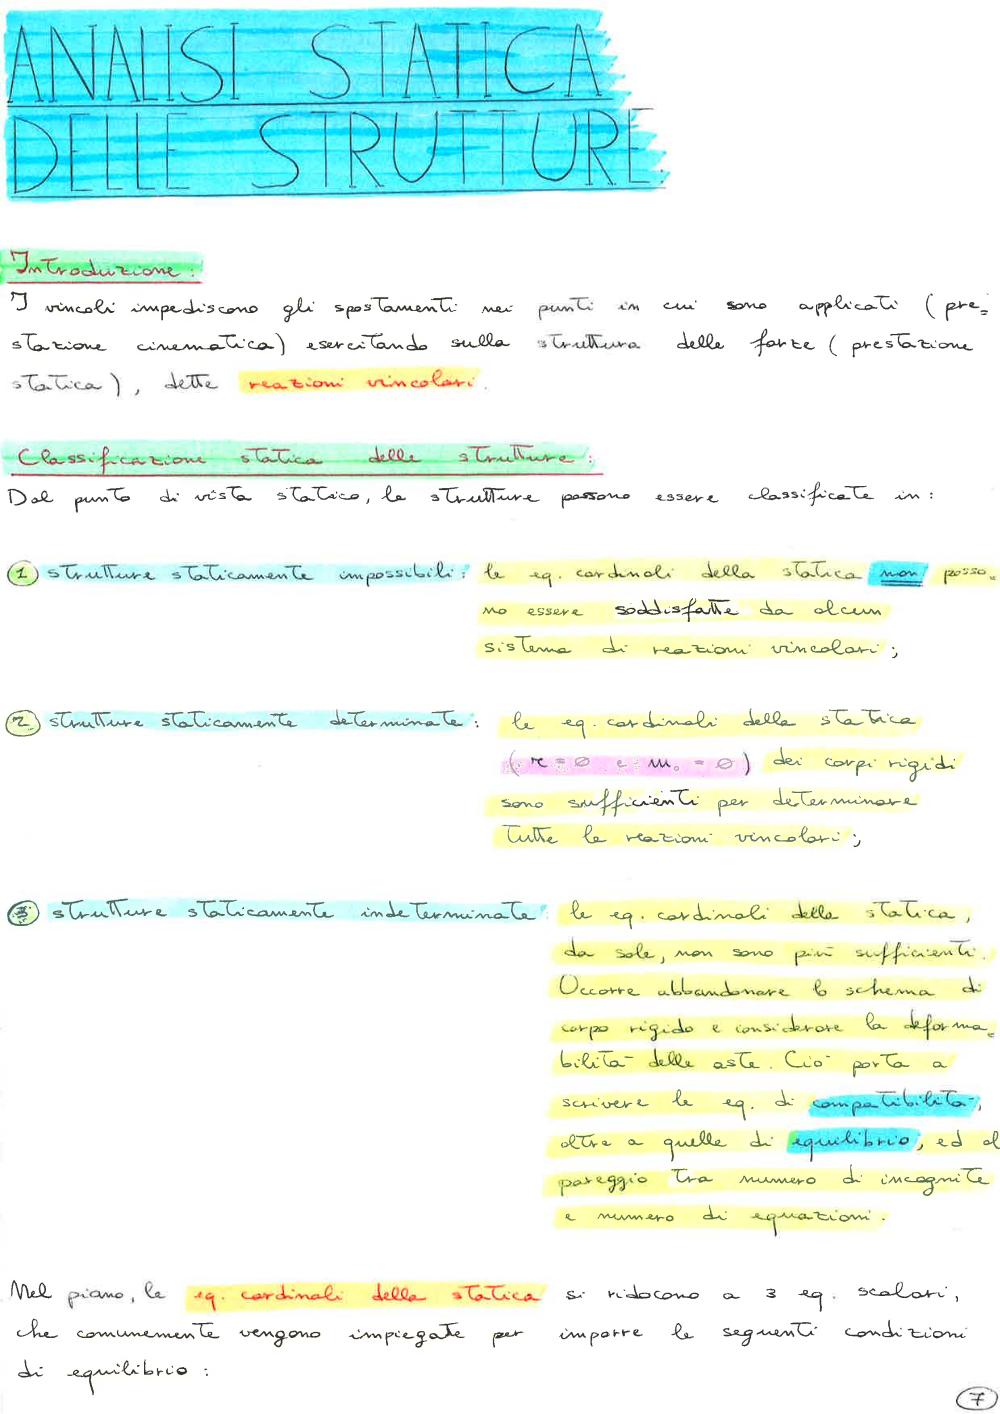 ANALISI STATICA
DELLE STRUTTURE
Introduzione:
I vincoli impediscono gli spostamenti nei punti in cui sono applicati (pre=
stazione cinematica) esercitando sulla struttura delle forze (prestazione
statica), dette reazioni vincolari.
Classificazione statica delle strutture:
Dal punto di vista statico, le strutture possono essere classificate in:
1 strutture staticamente impossibili: le eq. cardinali della statica non posso=
no essere soddisfatte da alcun
sistema di reazioni vincolari;
2 strutture staticamente determinate: le eq. cardinali della statica
(r = 0 e m₀ = 0) dei corpi rigidi
sono sufficienti per determinare
tutte le reazioni vincolari;
3 strutture staticamente indeterminate: le eq. cardinali della statica,
da sole, non sono più sufficienti.
Occorre abbandonare lo schema di
corpo rigido e considerare la deforma=
bilità delle aste. Ciò porta a
scrivere le eq. di compatibilità,
oltre a quelle di equilibrio, ed al
pareggio tra numero di incognite
e numero di equazioni.
Nel piano, le eq. cardinali della statica si riducono a 3 eq. scalari,
che comunemente vengono impiegate per imporre le seguenti condizioni
di equilibrio:
7